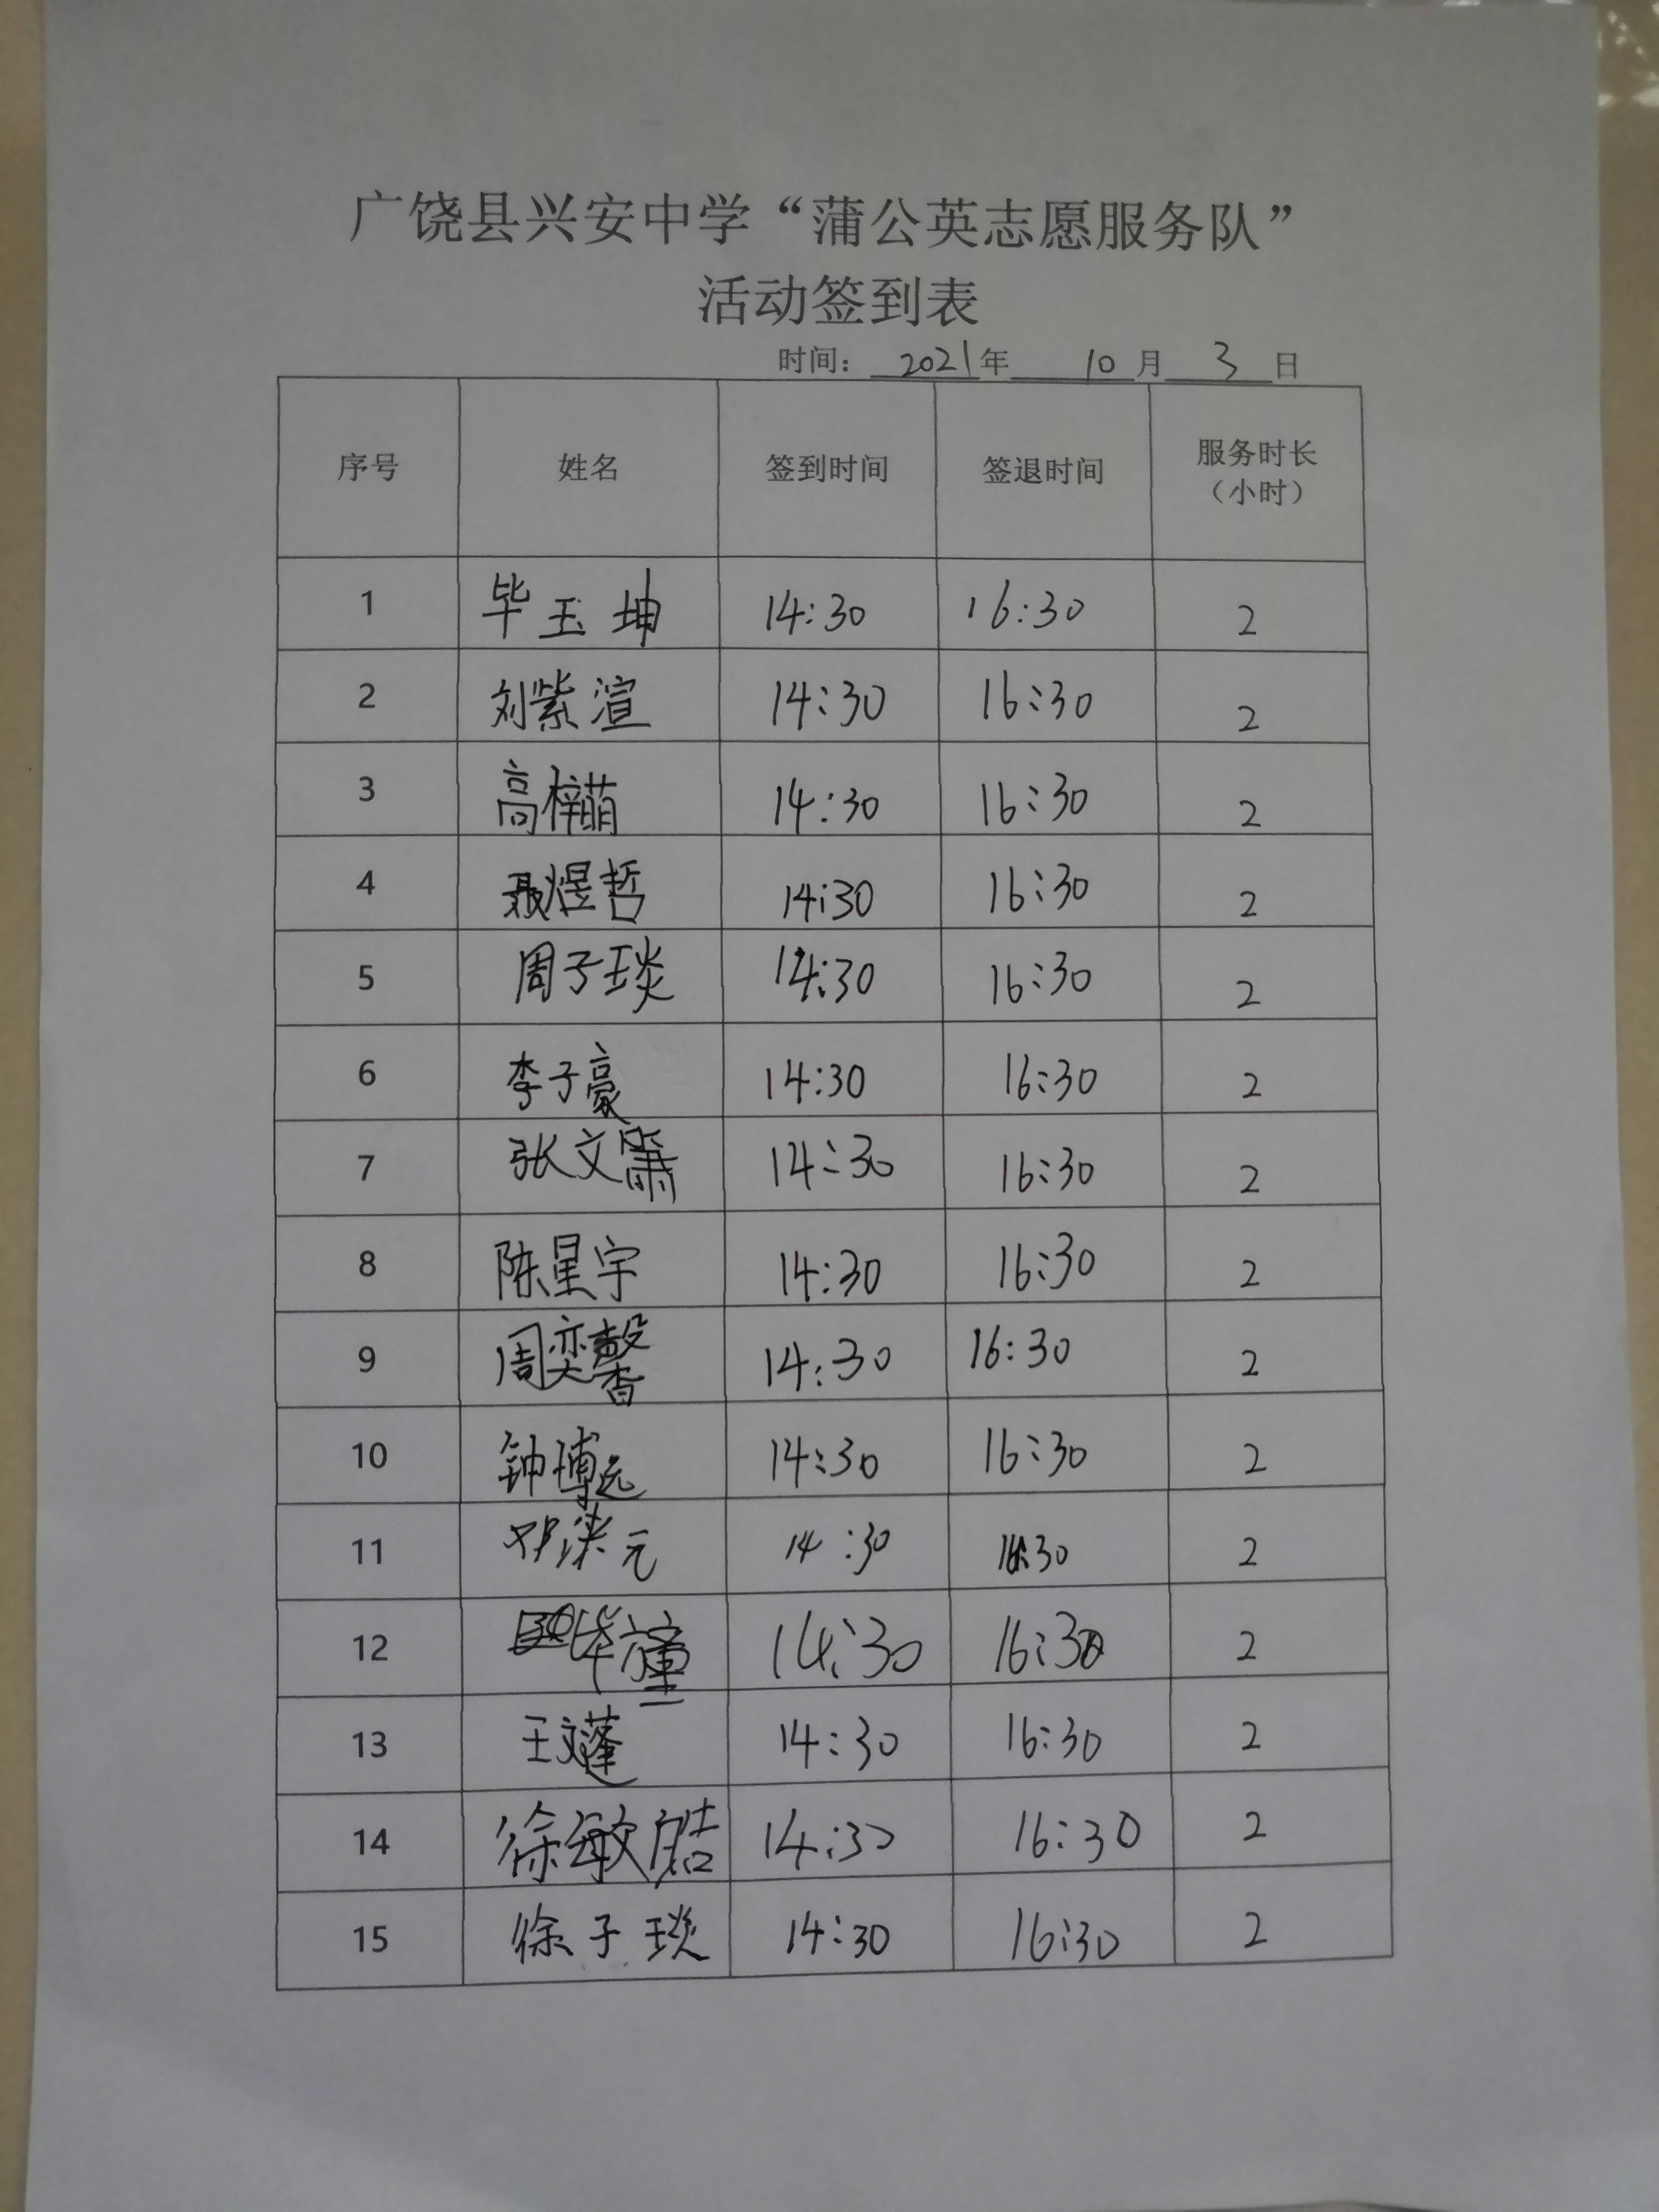 广饶县兴安中学“蒲公英志愿服务队”
活动签到表
时间： 2021 年 10 月 3 日
序号 姓名 签到时间 签退时间 服务时长（小时）
1 毕玉坤 14:30 16:30 2
2 刘紫渲 14:30 16:30 2
3 高梓萌 14:30 16:30 2
4 聂煜哲 14:30 16:30 2
5 周子琰 14:30 16:30 2
6 李子豪 14:30 16:30 2
7 张文箫 14:30 16:30 2
8 陈星宇 14:30 16:30 2
9 周奕馨 14:30 16:30 2
10 钟博远 14:30 16:30 2
11 邓 元 14:30 16:30 2
12 毕 14:30 16:30 2
13 王文蓬 14:30 16:30 2
14 徐敏 14:30 16:30 2
15 徐子琰 14:30 16:30 2